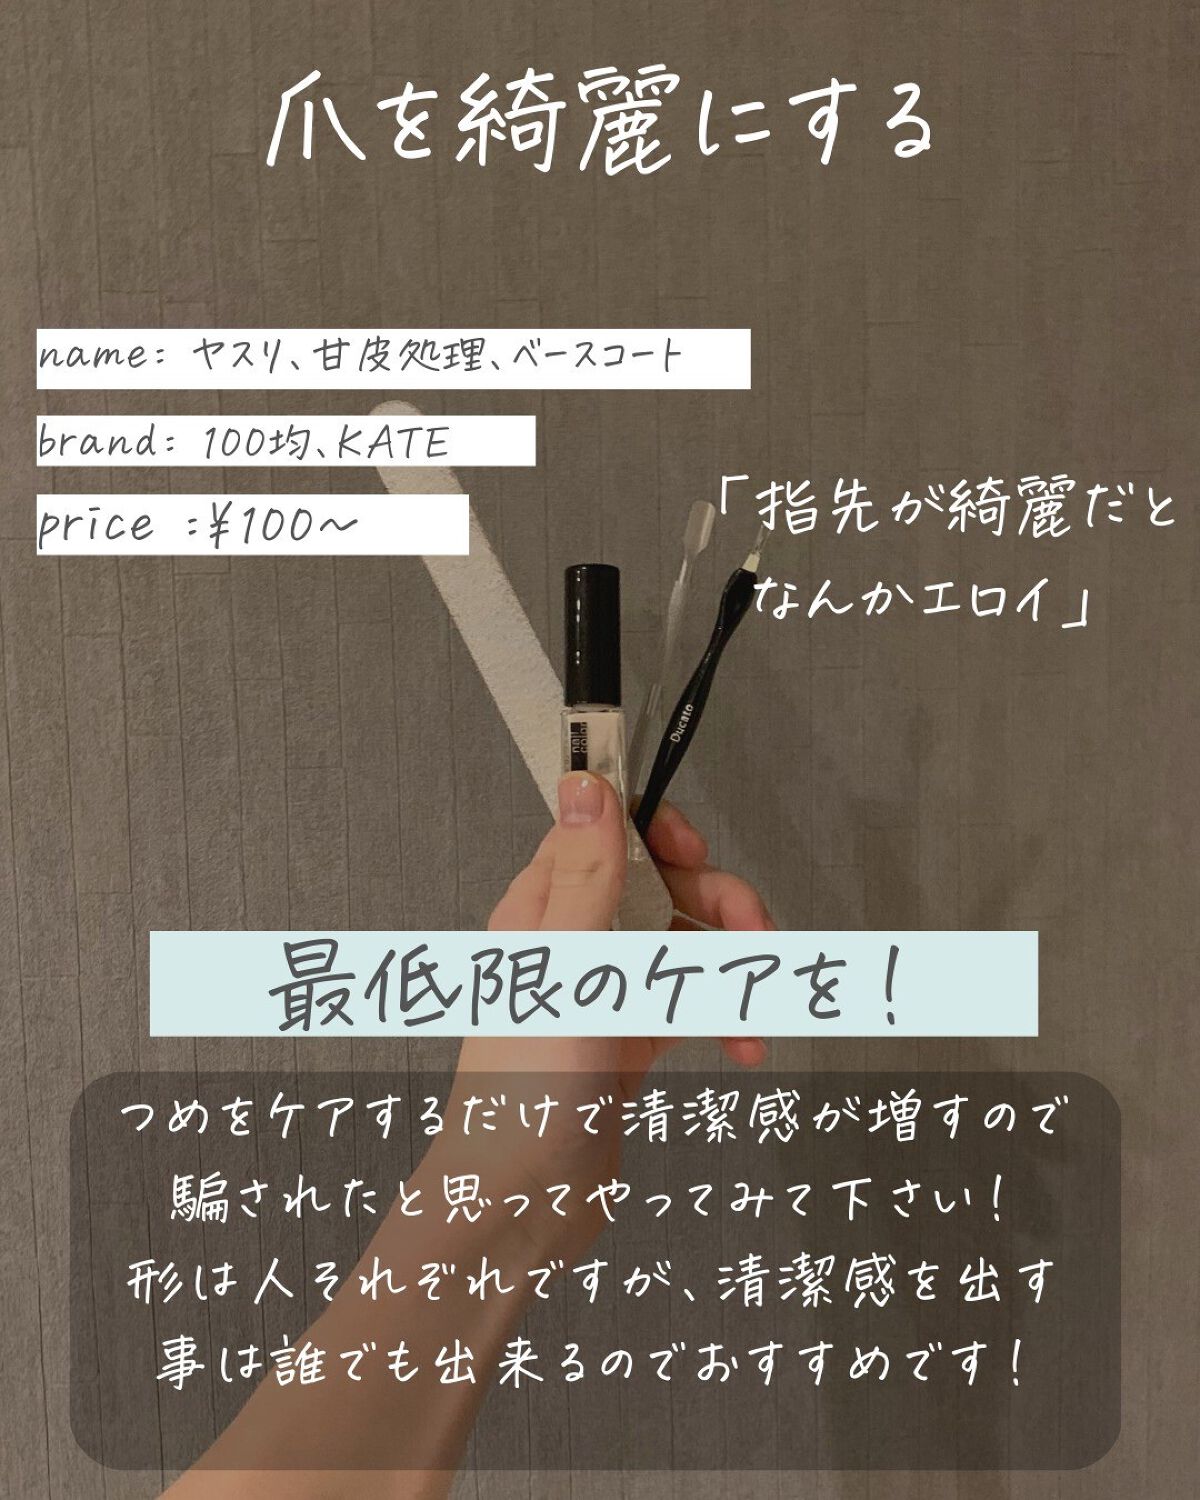 爪を綺麗にする
name: ヤスリ、甘皮処理、ベースコート
brand: 100均、KATE
price :¥100〜
「指先が綺麗だと
なんかエロイ」
nail
color
Ducato
最低限のケアを!
つめをケアするだけで清潔感が増すので
騙されたと思ってやってみて下さい!
形は人それぞれですが、清潔感を出す
事は誰でも出来るのでおすすめです!